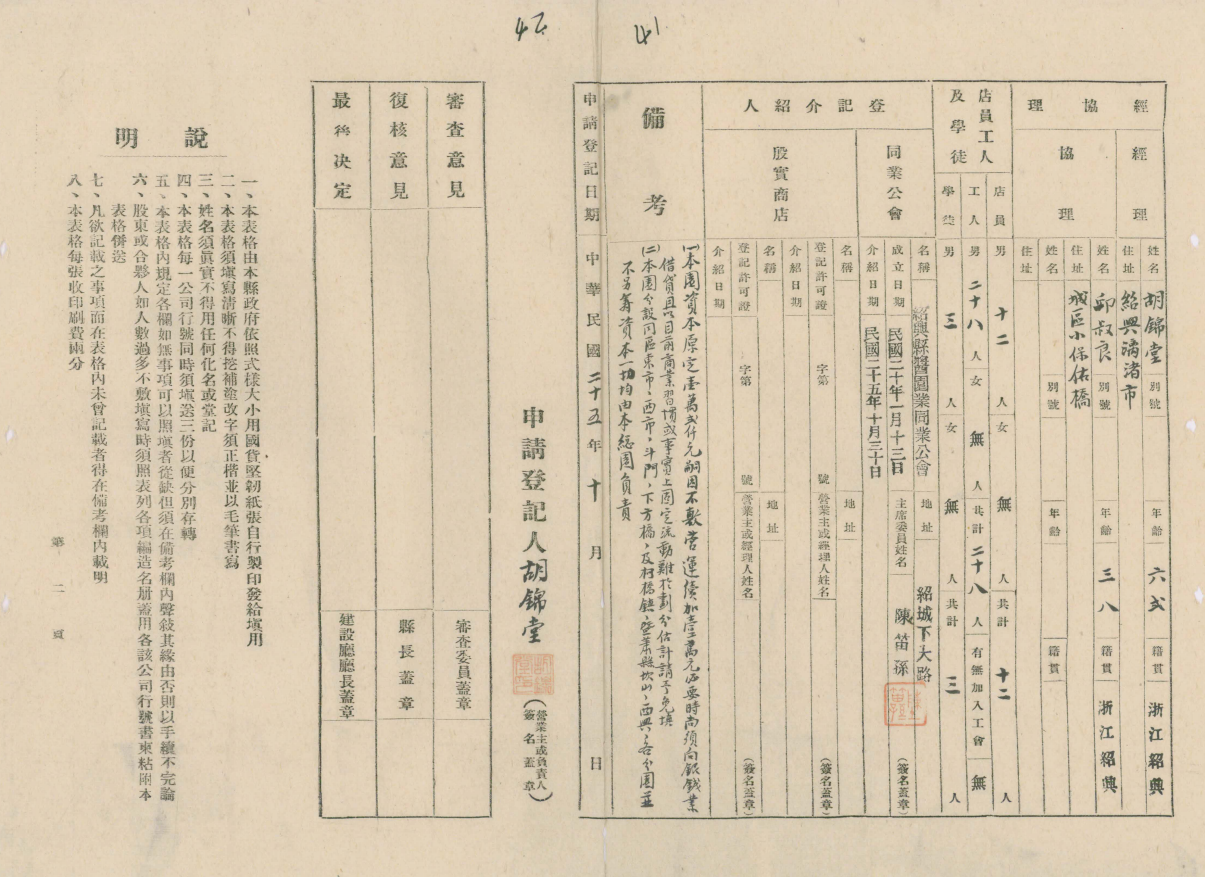 41
42
經協理
經理
姓名 胡錦堂 別號 年齡 六弍 籍貫 浙江紹興
住址 紹興漓渚市
協理
姓名 邱叔良 別號 年齡 三八 籍貫 浙江紹興
住址 城區小保佑橋
姓名 別號 年齡 籍貫
住址
店員工人及學徒
店員 男 十二 人女 無 人共計 十二 人
工人 男 二十八 人女 無 人共計 二十八 人 有無加入工會 無
學徒 男 三 人女 無 人共計 三 人
登記介紹人
同業公會
名稱 紹興縣醬園業同業公會 地址 紹城下大路
成立日期 民國二十年一月十三日 主席委員姓名 陳笛孫 (簽名蓋章)
介紹日期 民國二十五年十月三十日
殷實商店
名稱 地址
登記許可證 字第 號 營業主或經理人姓名 (簽名蓋章)
介紹日期
名稱 地址
登記許可證 字第 號 營業主或經理人姓名 (簽名蓋章)
介紹日期
備考
(一)本園資本原定壹萬弍仟元嗣因不敷營運續加壹萬元必要時尚須向銀錢業
借貸且以目前商業習慣或事實上固定流動難於劃分估計請予免填
(二)本園分設同區東市,西市,斗門,下方橋,及柯橋鎮,暨蕭縣坎山,西興,各分園並
不另籌資本一切均由本總園負責
申請登記日期 中華民國二十五年十月 日
申請登記人胡錦堂 (營業主或負責人簽名蓋章)
審查意見 審查委員蓋章
復核意見 縣長蓋章
最後決定 建設廳廳長蓋章
說明
一、本表格由本縣政府依照式樣大小用國貨堅韌紙張自行製印發給塡用
二、本表格須塡寫清晰不得挖補塗改字須正楷並以毛筆書寫
三、姓名須眞實不得用任何化名或堂記
四、本表格每一公司行號同時須塡送三份以便分別存轉
五、本表格內規定各欄如無事項可以照塡者從缺但須在備考欄內聲敍其緣由否則以手續不完論
六、股東或合夥人如人數過多不敷塡寫時須照表列各項編造名册蓋用各該公司行號書柬粘附本
表格併送
七、凡欲記載之事項而在表格內未曾記載者得在備考欄內載明
八、本表格每張收印刷費兩分
第二頁